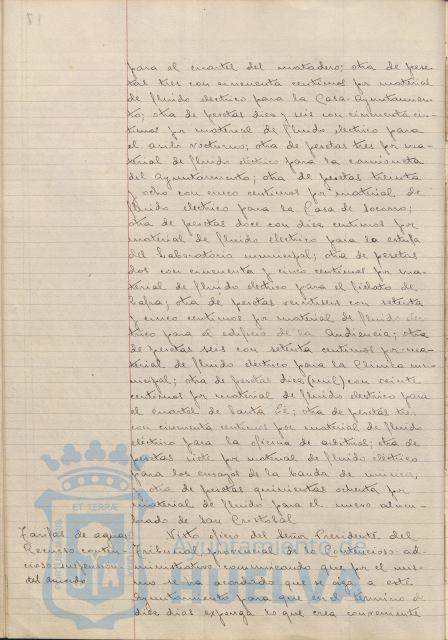 para el cuartel del matadero; otra de pese-
tas tres con cincuenta centimos por material
de fluido electrico para la Casa-Ayuntamien-
to; otra de pesetas diez y seis con cincuenta cen-
timos por material de fluido electrico para
el aula nocturna; otra de pesetas tres por ma-
terial de fluido electrico para la camioneta
del Ayuntamiento; otra de pesetas treinta
y ocho con cinco centimos por material de
fluido electrico para la Casa de Socorro;
otra de pesetas doce con diez centimos por
material de fluido electrico para la estufa
del Laboratorio municipal; otra de pesetas
dos con cincuenta y cinco centimos por ma-
terial de fluido electrico para el fielato de
Zafra; otra de pesetas veintiseis con setenta
y cinco centimos por material de fluido elec-
trico para el edificio de la Audiencia; otra
de pesetas seis con setenta centimos por ma-
terial de fluido electrico para la Clinica mu-
nicipal; otra de pesetas diez (mil) con veinte
centimos por material de fluido electrico para
el cuartel de Santa Fé; otra de pesetas tres
con cincuenta centimos por material de fluido
electrico para la oficina de arbitrios; otra de
pesetas siete por material de fluido electrico
para los ensayos de la banda de musica,
y otra de pesetas quinientas ochenta por
material de fluido para el nuevo alum-
brado de San Cristobal.
Tarifas de aguas
Recurso conten-
cioso, suspension
del acuerdo
Visto oficio del Señor Presidente del
Tribunal provincial de lo Contencioso-ad-
ministrativo comunicando que por el mis-
mo se ha acordado que se oiga a este
Ayuntamiento para que en el término de
diez dias exponga lo que crea conveniente
ET TERRAE
Ayuntamiento de